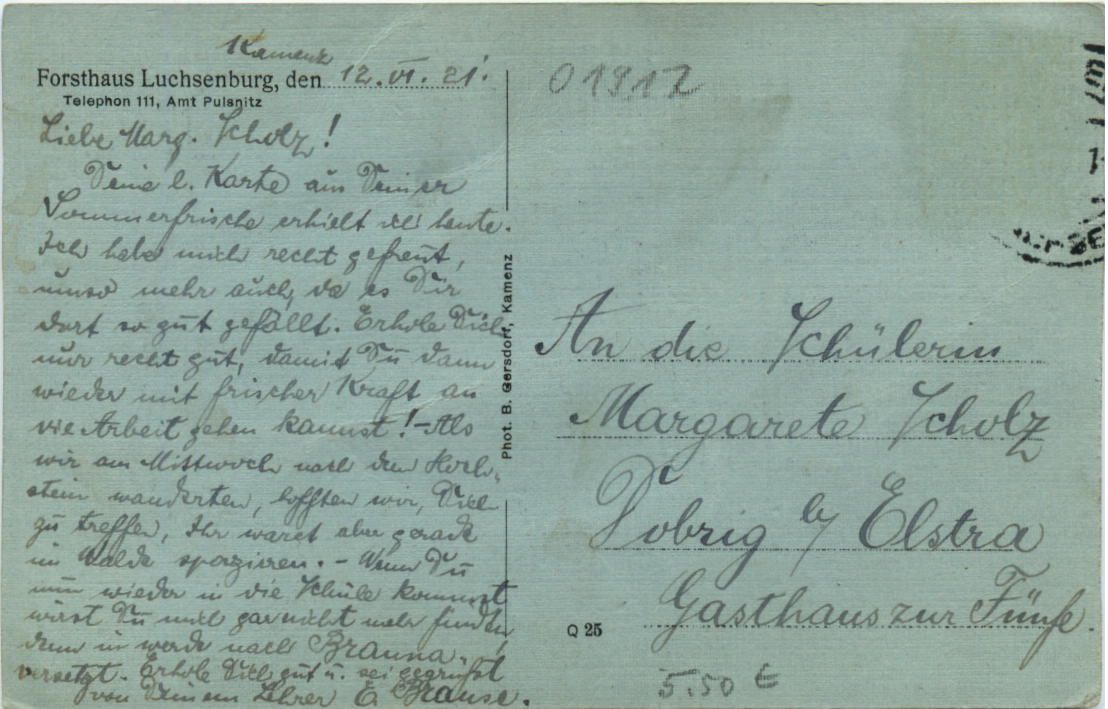 Kamenz
Forsthaus Luchsenburg, den 12. VI. 21.
Telephon 111, Amt Pulsnitz
Liebe Marg. Scholz!
Deine l. Karte aus Deiner
Sommerfrische erhielt ich heute.
Ich habe mich recht gefreut,
umso mehr auch, da es Dir
dort so gut gefällt. Erhole Dich
nur recht gut, damit Du dann
wieder mit frischer Kraft an
die Arbeit gehen kannst! - Als
wir am Mittwoch nach dem Hoch-
stein wanderten, hofften wir, Dich
zu treffen, Ihr waret aber gerade
im Walde spazieren. - Wenn Du
nun wieder in die Schule kommst
wirst Du mich gar nicht mehr finden,
denn ich werde nach Brauna
versetzt. Erhole Dich gut u. sei gegrüßt
von Deinem Lehrer E. Brause.
Phot. B. Gersdorf, Kamenz
01917
An die Schülerin
Margarete Scholz
Dobrig by Elstra
Gasthaus zur Fünfe.
Q 25
5.50 €